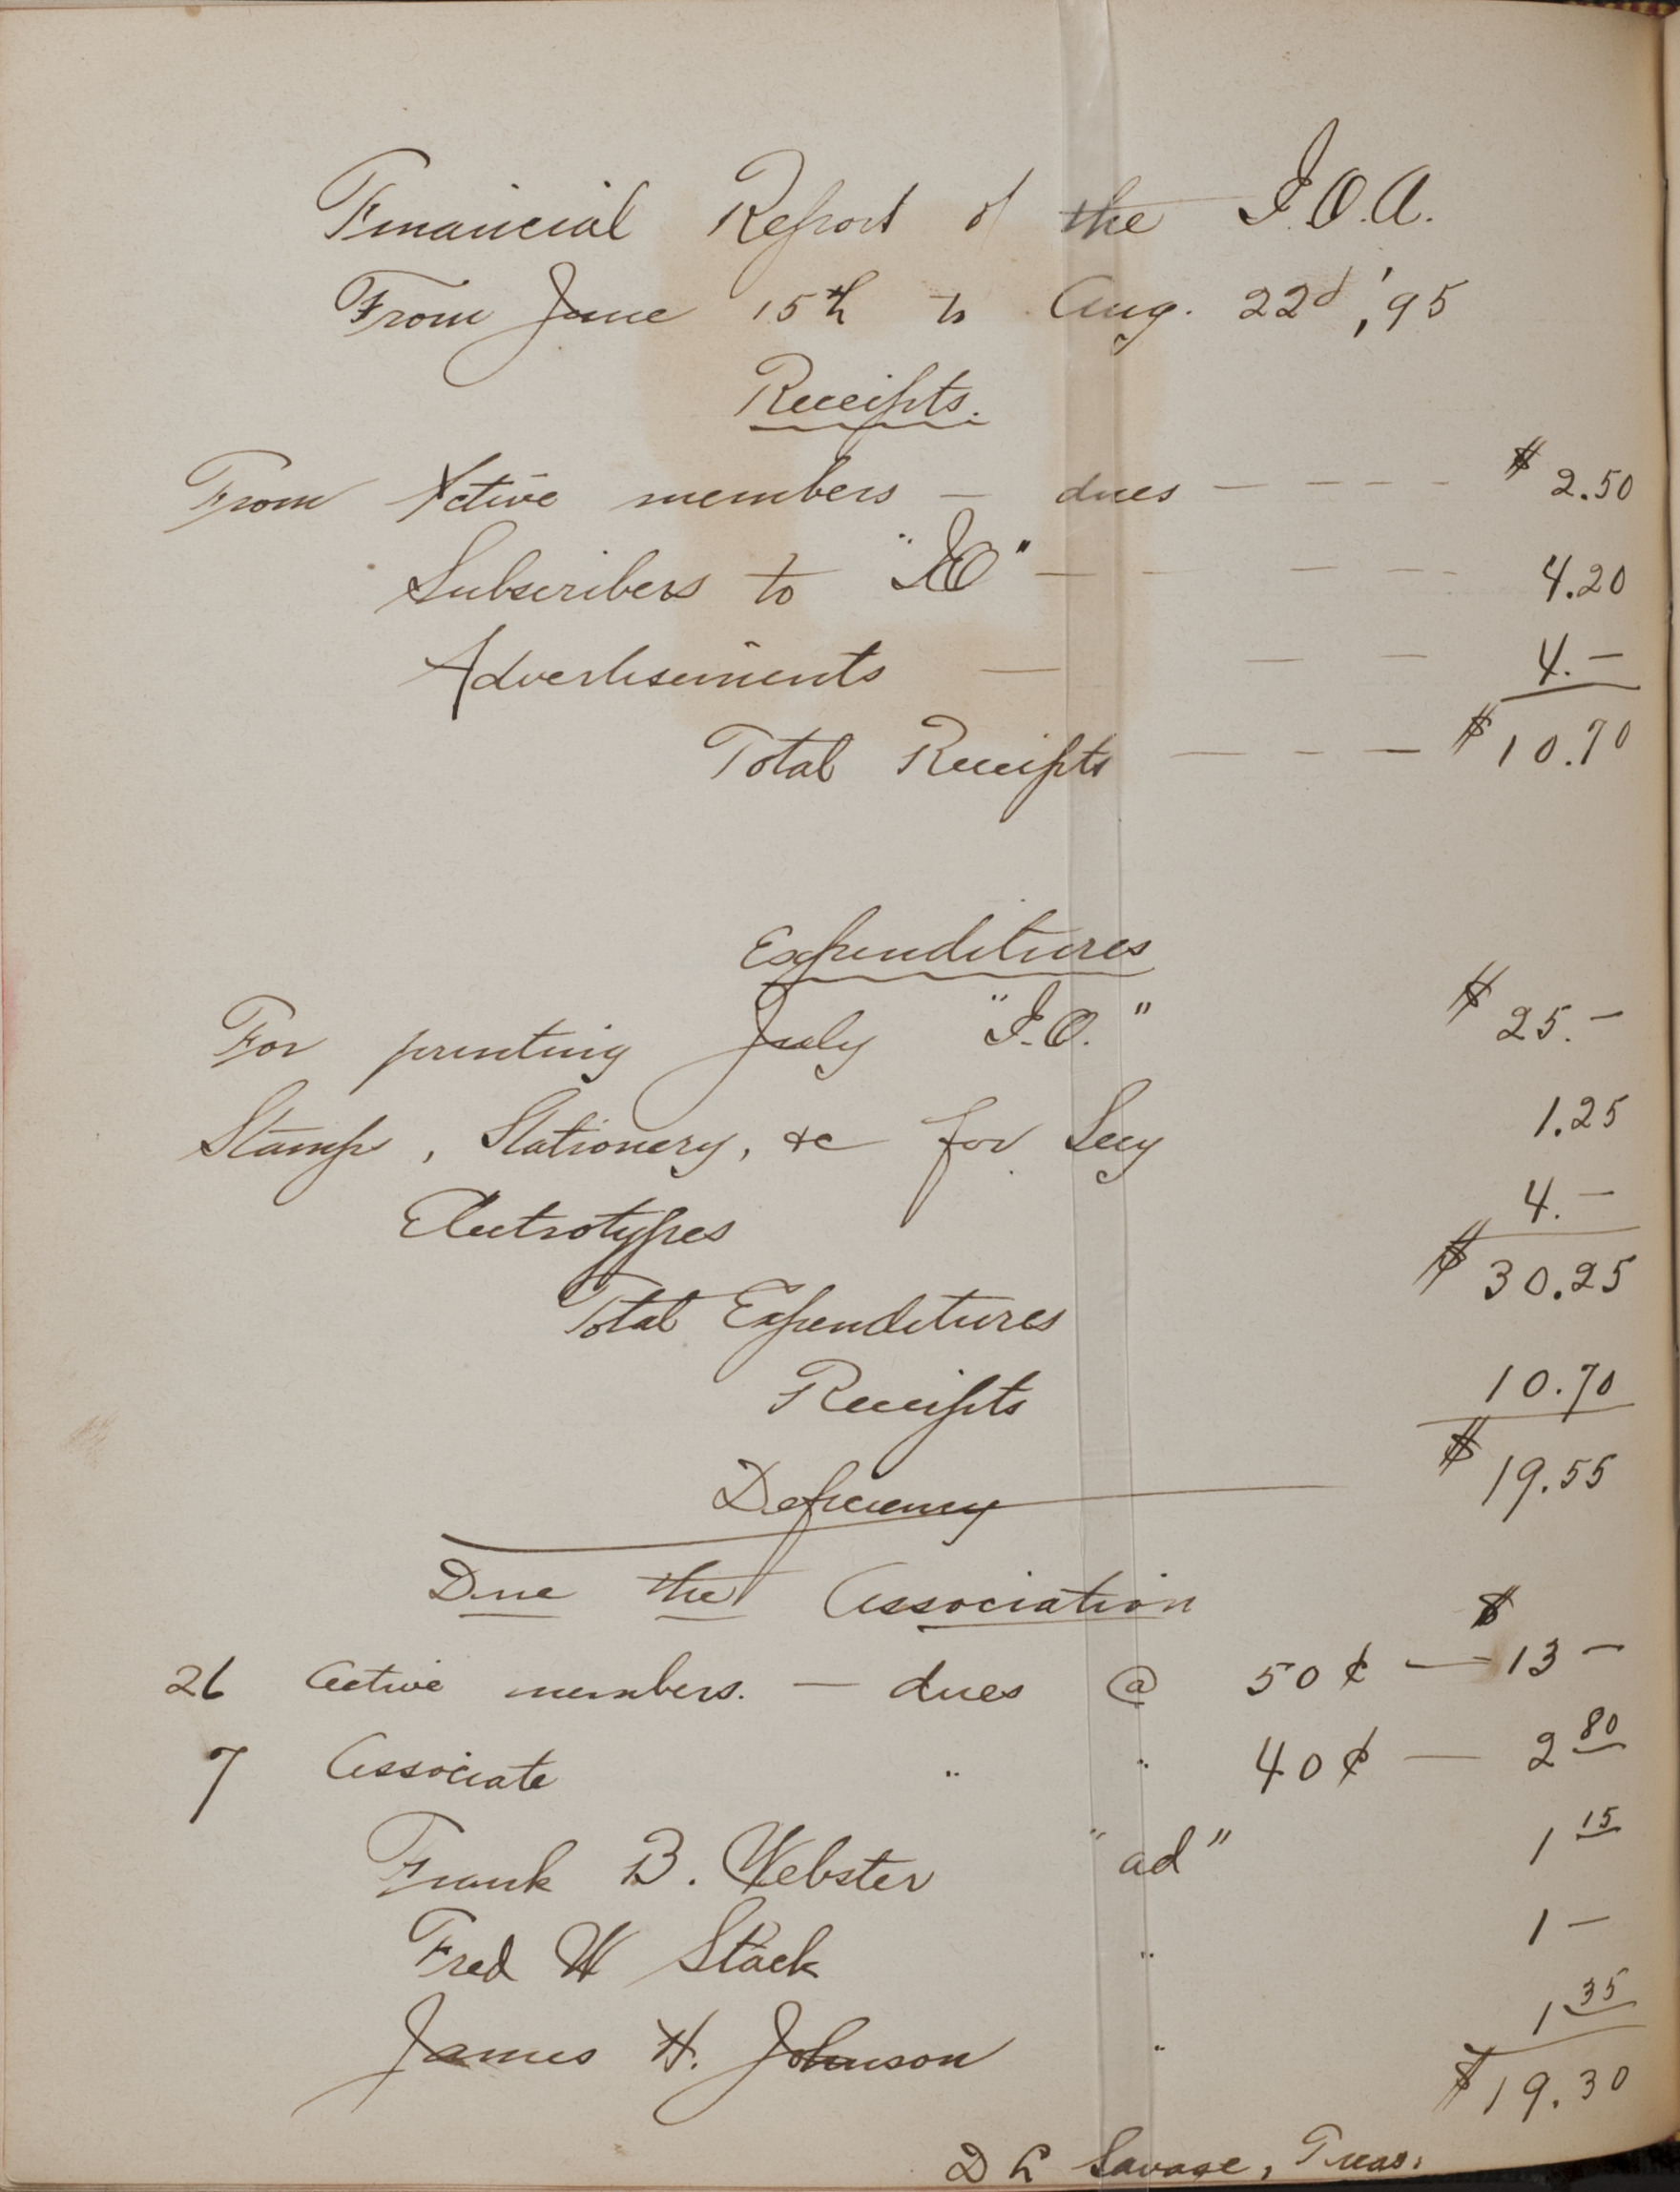 Financial Report of the I.O.A.
From June 15th to Aug. 22d, '95
Receipts.
From Active members — dues — — — — $ 2.50
Subscribers to "IO" — — — — — 4.20
Advertisements — — — 4.—
Total Receipts — — — $ 10.70
Expenditures
For printing July "I.O." $ 25.—
Stamps, Stationery, &c for Secy 1.25
Electrotypes 4.—
Total Expenditures $ 30.25
Receipts 10.70
Deficiency — $ 19.55
Due the Association
26 Active members. — dues @ 50¢ — $ 13 —
7 Associate " " 40¢ — 2 80
Frank B. Webster "ad" 1 15
Fred W Stack " 1 —
James H. Johnson " 1 35
$ 19.30
D L Savage, Treas.